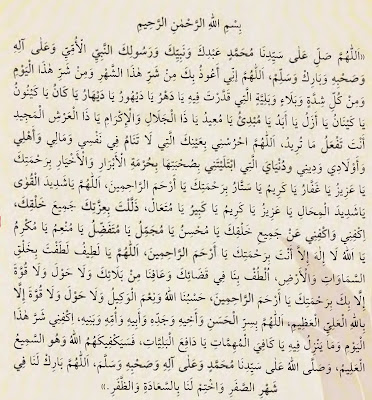 بِسْمِ اللهِ الرَّحْمٰنِ الرَّحِيْمِ
«اَللّٰهُمَّ صَلِّ عَلَى سَيِّدِنَا مُحَمَّدٍ عَبْدِكَ وَنَبِيِّكَ وَرَسُوْلِكَ النَّبِيِّ الْأُمِّيِّ وَعَلَى آلِهِ
وَصَحْبِهِ وَبَارِكْ وَسَلِّمْ، اَللّٰهُمَّ إِنِّي أَعُوْذُ بِكَ مِنْ شَرِّ هٰذَا الشَّهْرِ وَمِنْ شَرِّ هٰذَا الْيَوْمِ
وَمِنْ كُلِّ شِدَّةٍ وَبَلَاءٍ وَبَلِيَّةٍ الَّتِي قَدَّرْتَ فِيهِ يَا دَهْرُ يَا دَيْهُورُ يَا دَيْهَارُ يَا كَانُ يَا كَيْنُونُ
يَا كَيْنَانُ يَا أَزَلُ يَا أَبَدُ يَا مُبْدِئُ يَا مُعِيدُ يَا ذَا الْجَلَالِ وَالْإِكْرَامِ يَا ذَا الْعَرْشِ الْمَجِيدِ
أَنْتَ تَفْعَلُ مَا تُرِيدُ، اَللّٰهُمَّ احْرُسْنِي بِعَيْنِكَ الَّتِي لَا تَنَامُ فِي نَفْسِي وَمَالِي وَأَهْلِي
وَأَوْلَادِي وَدِينِي وَدُنْيَايَ الَّتِي ابْتَلَيْتَنِي بِصُحْبَتِهَا بِحُرْمَةِ الْأَبْرَارِ وَالْأَخْيَارِ بِرَحْمَتِكَ
يَا عَزِيزُ يَا غَفَّارُ يَا كَرِيمُ يَا سَتَّارُ بِرَحْمَتِكَ يَا أَرْحَمَ الرَّاحِمِينَ، اَللّٰهُمَّ يَاشَدِيدَ الْقُوٰى
يَاشَدِيْدَ الْمِحَالِ يَا عَزِيزُ يَا كَرِيمُ يَا كَبِيرُ يَا مُتَعَالُ، ذَلَّلْتَ بِعِزَّتِكَ جَمِيعَ خَلْقِكَ،
اِكْفِنِي وَاكْفِنِي عَنْ جَمِيعِ خَلْقِكَ يَا مُحْسِنُ يَا مُجَمِّلُ يَا مُتَفَضِّلُ يَا مُنْعِمُ يَا مُكْرِمُ
يَا اللهُ لَا إِلٰهَ إِلَّا أَنْتَ بِرَحْمَتِكَ يَا أَرْحَمَ الرَّاحِمِينَ، اَللّٰهُمَّ يَا لَطِيفُ لَطَفْتَ بِخَلْقِ
السَّمَاوَاتِ وَالْأَرْضِ، اُلْطُفْ بِنَا فِي قَضَائِكَ وَعَافِنَا مِنْ بَلَائِكَ وَلَا حَوْلَ وَلَا قُوَّةَ
إِلَّا بِكَ بِرَحْمَتِكَ يَا أَرْحَمَ الرَّاحِمِينَ، حَسْبُنَا اللهُ وَنِعْمَ الْوَكِيلُ وَلَا حَوْلَ وَلَا قُوَّةَ إِلَّا
بِاللهِ الْعَلِيِّ الْعَظِيمِ، اَللّٰهُمَّ بِسِرِّ الْحَسَنِ وَأَخِيهِ وَجَدِّهِ وَأَبِيهِ وَأُمِّهِ وَبَنِيهِ، اِكْفِنِي شَرَّ هٰذَا
الْيَوْمِ وَمَا يَنْزِلُ فِيهِ يَا كَافِيَ الْمُهِمَّاتِ يَا دَافِعَ الْبَلِيَّاتِ، فَسَيَكْفِيكَهُمُ اللهُ وَهُوَ السَّمِيعُ
الْعَلِيمُ، وَصَلَّى اللهُ عَلَى سَيِّدِنَا مُحَمَّدٍ وَعَلَى آلِهِ وَصَحْبِهِ وَسَلَّمَ، اَللّٰهُمَّ بَارِكْ لَنَا فِي
شَهْرِ الصَّفَرِ وَاخْتِمْ لَنَا بِالسَّعَادَةِ وَالظَّفَرِ.»